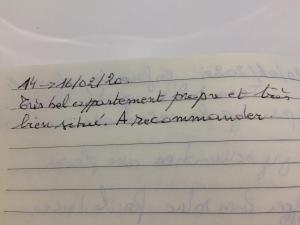 14->16/02/20
Très bel appartement propre et très
bien situé. A recommander.